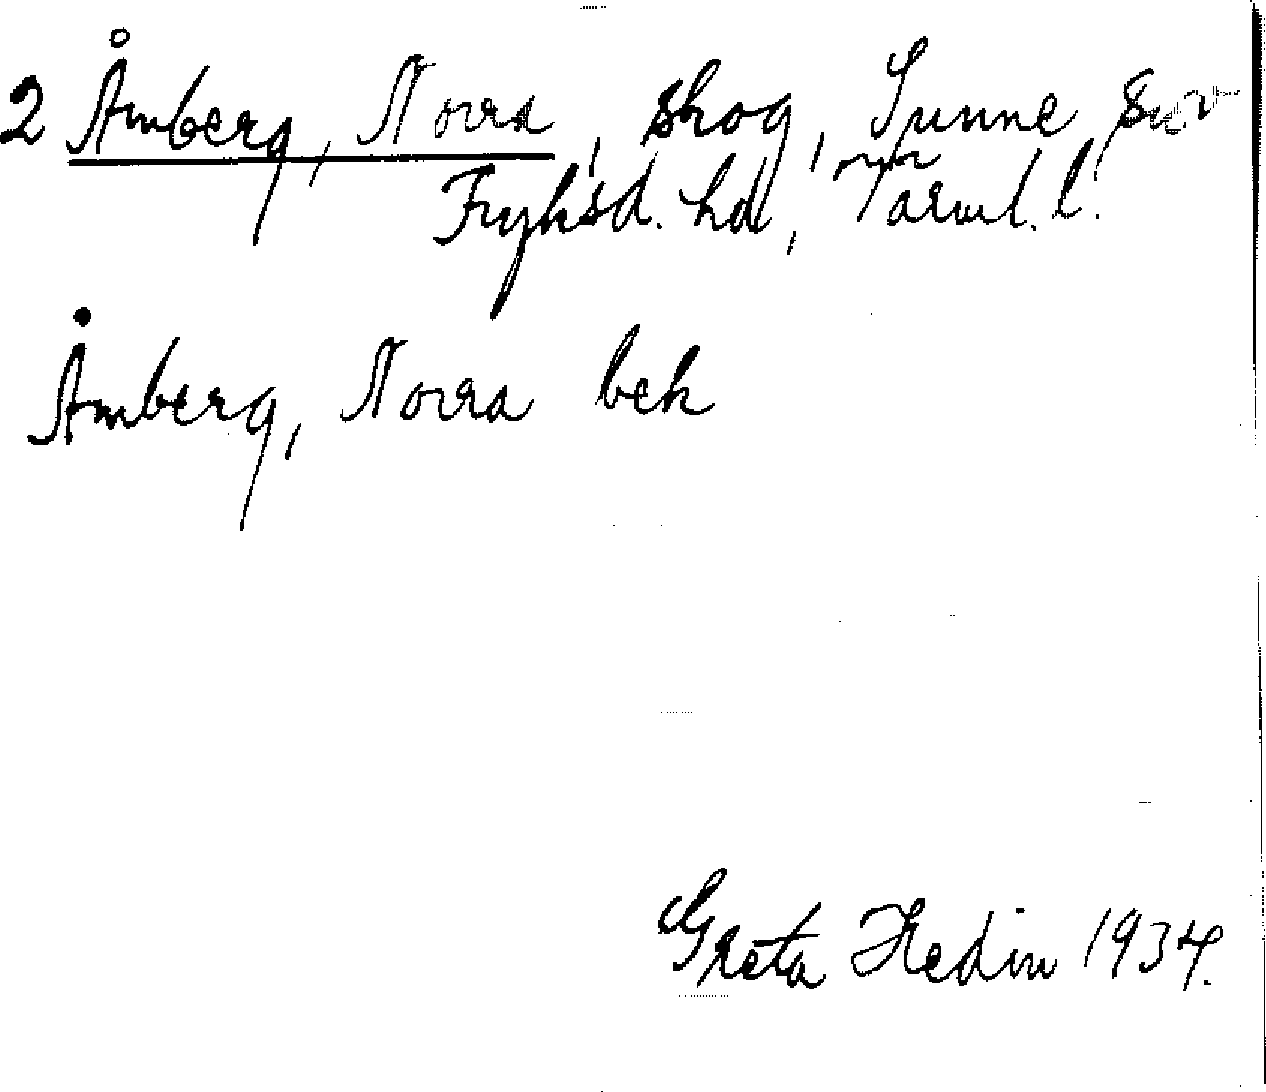 2 Åmberg, Norra, skog, Sunne sn
Fryksd. hd, Värml. l.
Åmberg, Norra bek
Greta Hedin 1934.